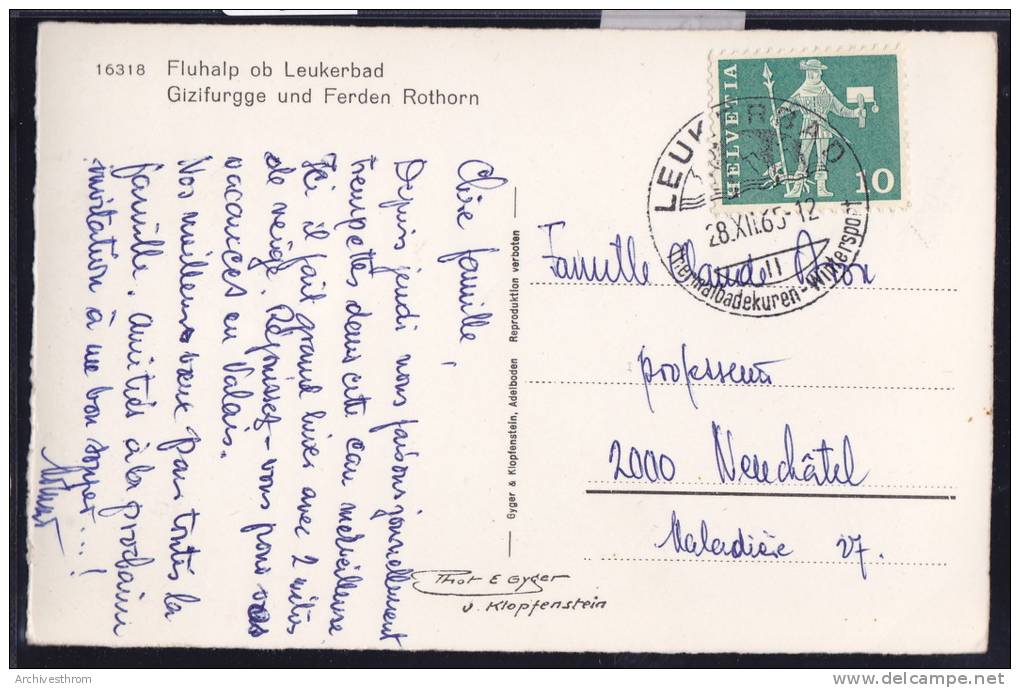 16318 Fluhalp ob Leukerbad
Gizifurgge und Ferden Rothorn
Chère famille !
Depuis jeudi nous faisons journellement
trempettes dans cette eau merveilleuse
Ici il fait grand luxe avec 2 mètres
de neige. Réjouissez-vous pour vos
vacances en Valais.
Nos meilleurs vœux pour toutes la
famille. amitiés à la prochaine
invitation à un bon souper...!
Gyger & Klopfenstein, Adelboden Reproduktion verboten
Phot E Gyger
u. Klopfenstein
HELVETIA
10
LEUKERBAD
28.XII.65-12
11
Thermalbadekuren - Wintersport
Famille Claude
professeur
2000 Neuchâtel
Maladière 27.
Archivesthrom
delcampe.net